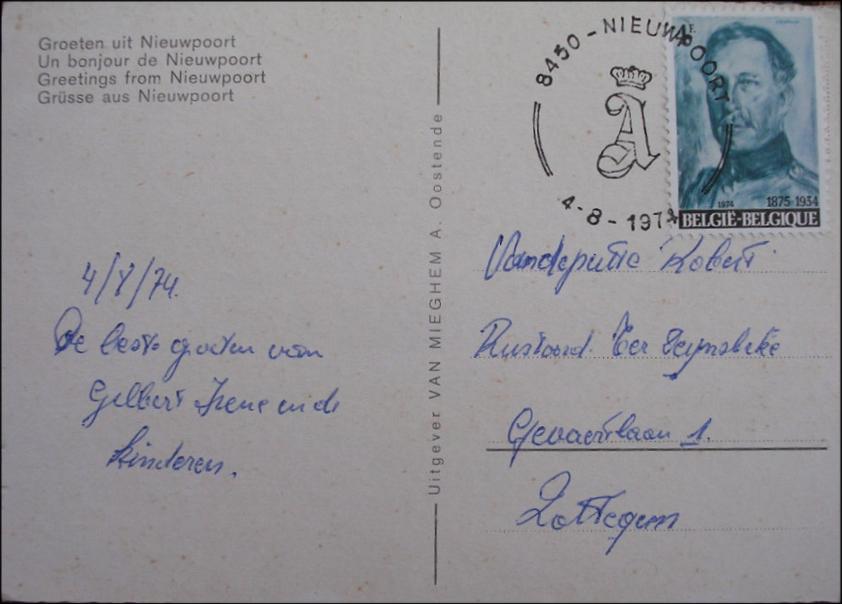 Groeten uit Nieuwpoort
Un bonjour de Nieuwpoort
Greetings from Nieuwpoort
Grüsse aus Nieuwpoort
4/8/74.
De beste groeten van
Gilbert Irene en de
kinderen.
Uitgever VAN MIEGHEM A. Oostende
8450 - NIEUWPOORT
A
4-8-1974
1974 1875-1934
BELGIË-BELGIQUE
Vandeputte Robert
Rustoord. Ter Deynsbeke
Gevaertlaan 1.
Zottegem